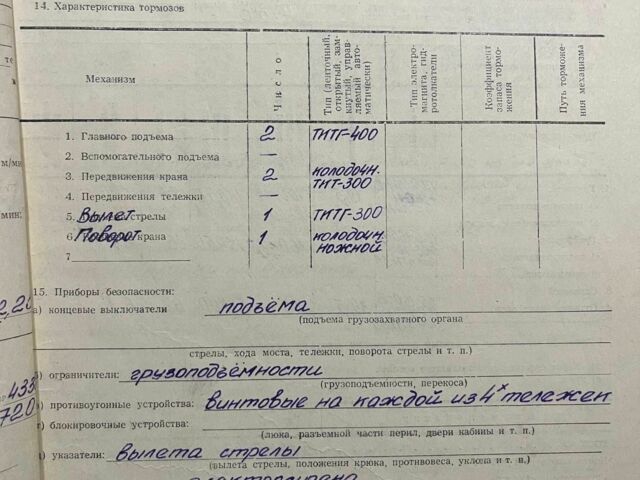 14. Характеристика тормозов
Механизм
Число
Тип (ленточный, открытый, замкнутый, управляемый автоматически)
Тип электромагнита, гидротолкатели
Коэффициент запаса торможения
Путь торможения механизма
1. Главного подъема 2 ТКТГ-400
2. Вспомогательного подъема —
3. Передвижения крана 2 колодочн. ТКТ-300
4. Передвижения тележки —
5. Вылет стрелы 1 ТКТГ-300
6. Поворот крана 1 колодочн. ножной
7
15. Приборы безопасности:
а) концевые выключатели подъёма
(подъема грузозахватного органа
стрелы, хода моста, тележки, поворота стрелы и т. п.)
) ограничители: грузоподъёмности
(грузоподъемности, перекоса)
) противоугонные устройства: винтовые на каждой из 4х тележек
г) блокировочные устройства:
(люка, разъемной части перил, двери кабины и т. п.)
) указатели: вылета стрелы
(вылета стрелы, положения крюка, противовеса, уклона и т. п.)
м/мин
мин;
433
720